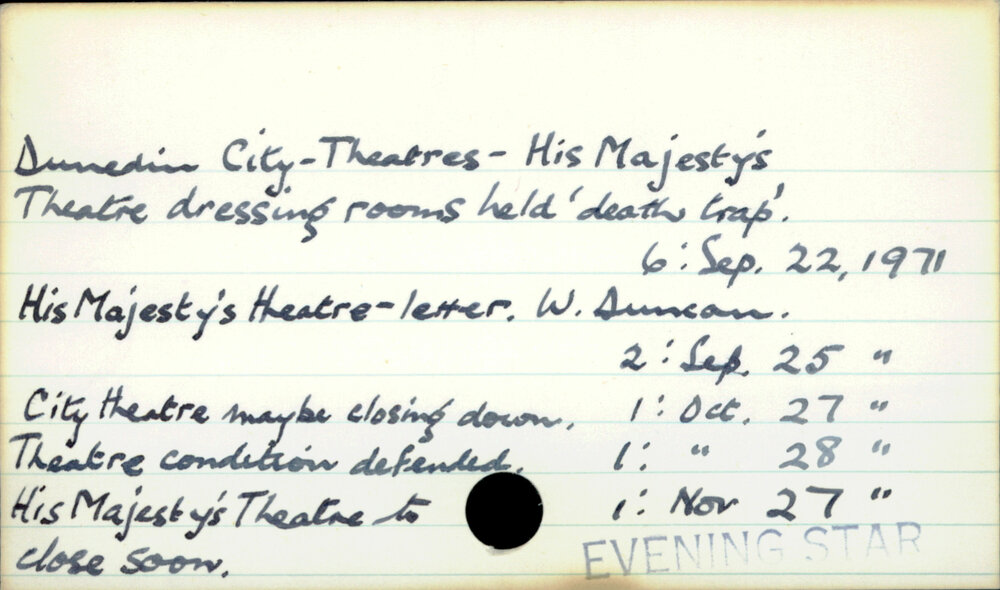 Dunedin City-Theatres- His Majesty's
Theatre dressing rooms held 'death trap'.
6: Sep. 22, 1971
His Majesty's theatre-letter. W. Duncan.
2: Sep. 25 "
City theatre maybe closing down. 1: Oct. 27 "
Theatre condition defended. 1: " 28 "
His Majesty's Theatre to 1: Nov 27 "
close soon.
EVENING STAR